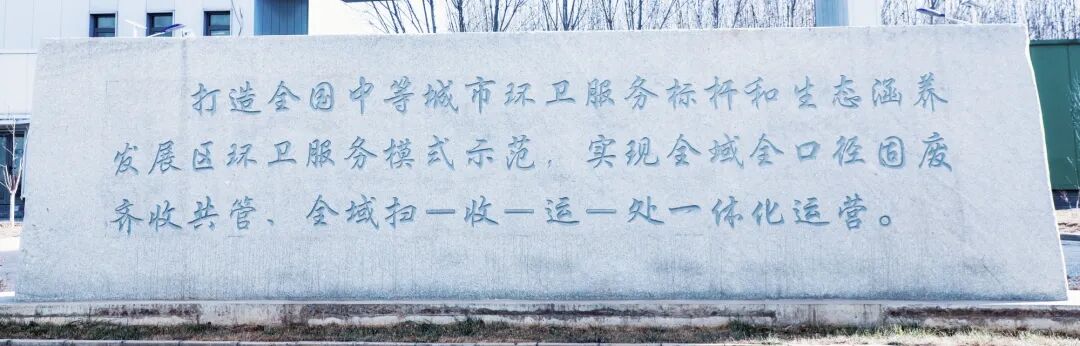 打造全国中等城市环卫服务标杆和生态涵养
发展区环卫服务模式示范，实现全域全口径固废
齐收共管、全域扫一收一运一处一体化运营。